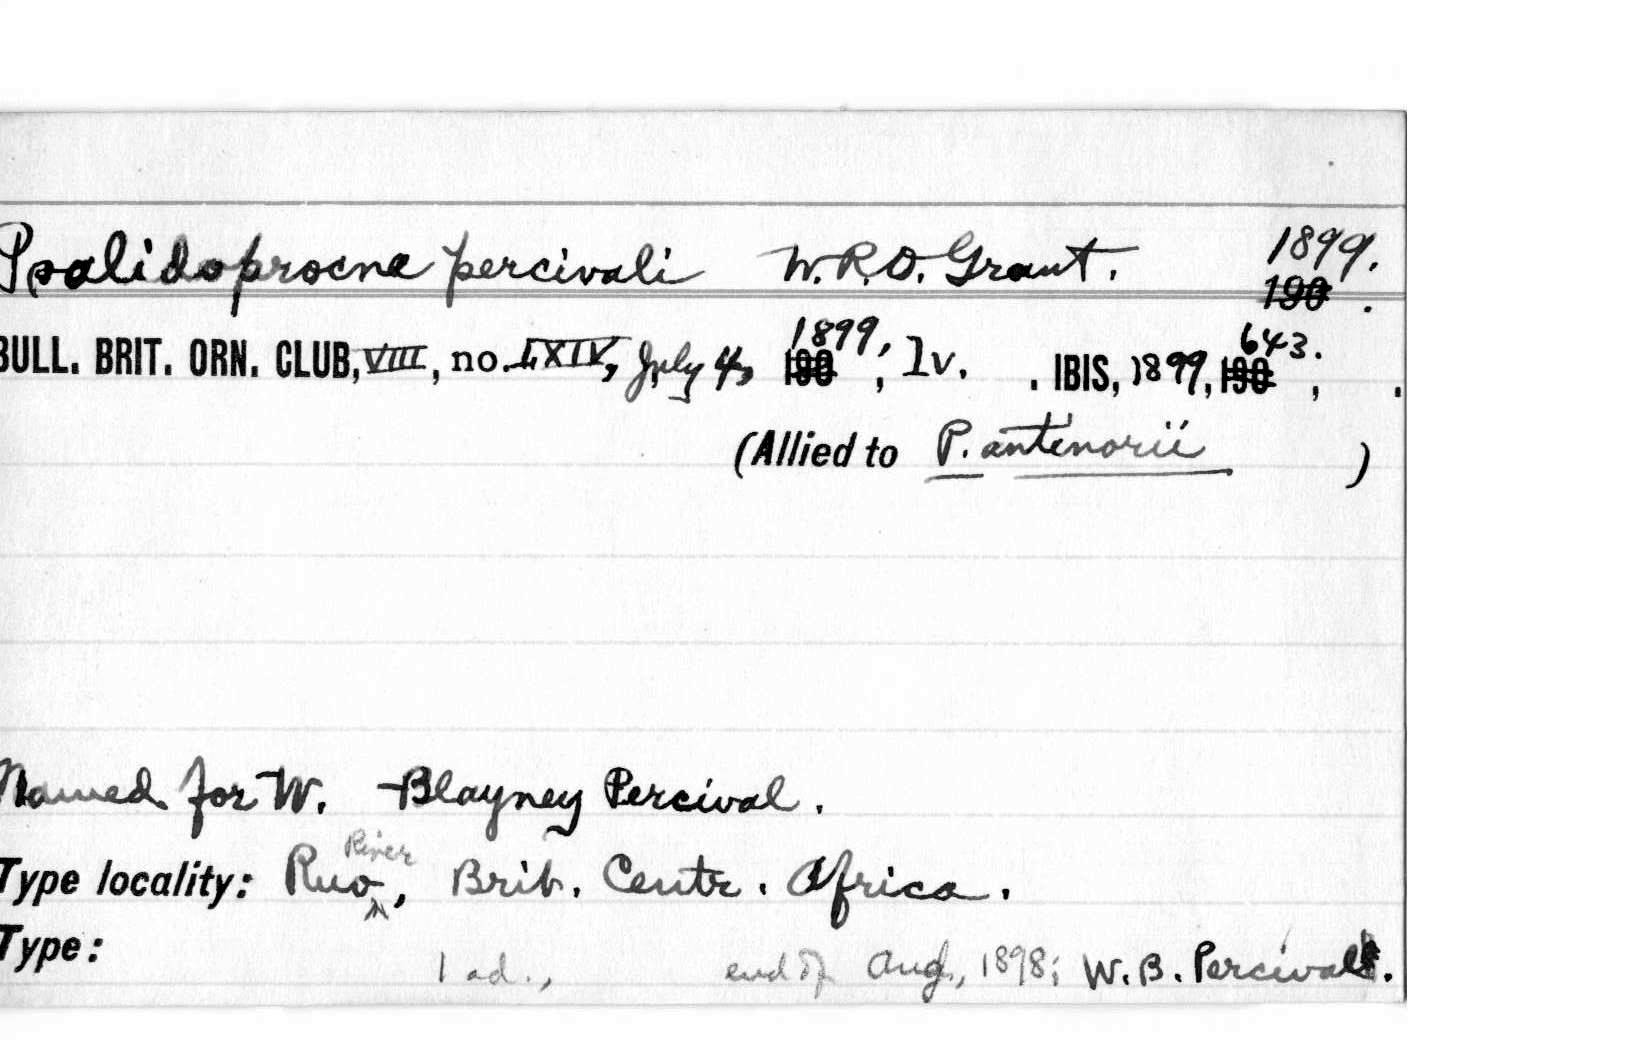 Psalidoprocne percivali W.R.O. Grant. 1899.
190 .
BULL. BRIT. ORN. CLUB, VIII, no. LXIV, July 4, 1899, 190 , lv. . IBIS, 1899, 190 , 643. .
(Allied to P. antinorii )
Named for W. Blayney Percival.
Type locality: Ruo River, Brit. Centr. Africa.
Type:
1 ad., end of Aug., 1898; W.B. Percival.